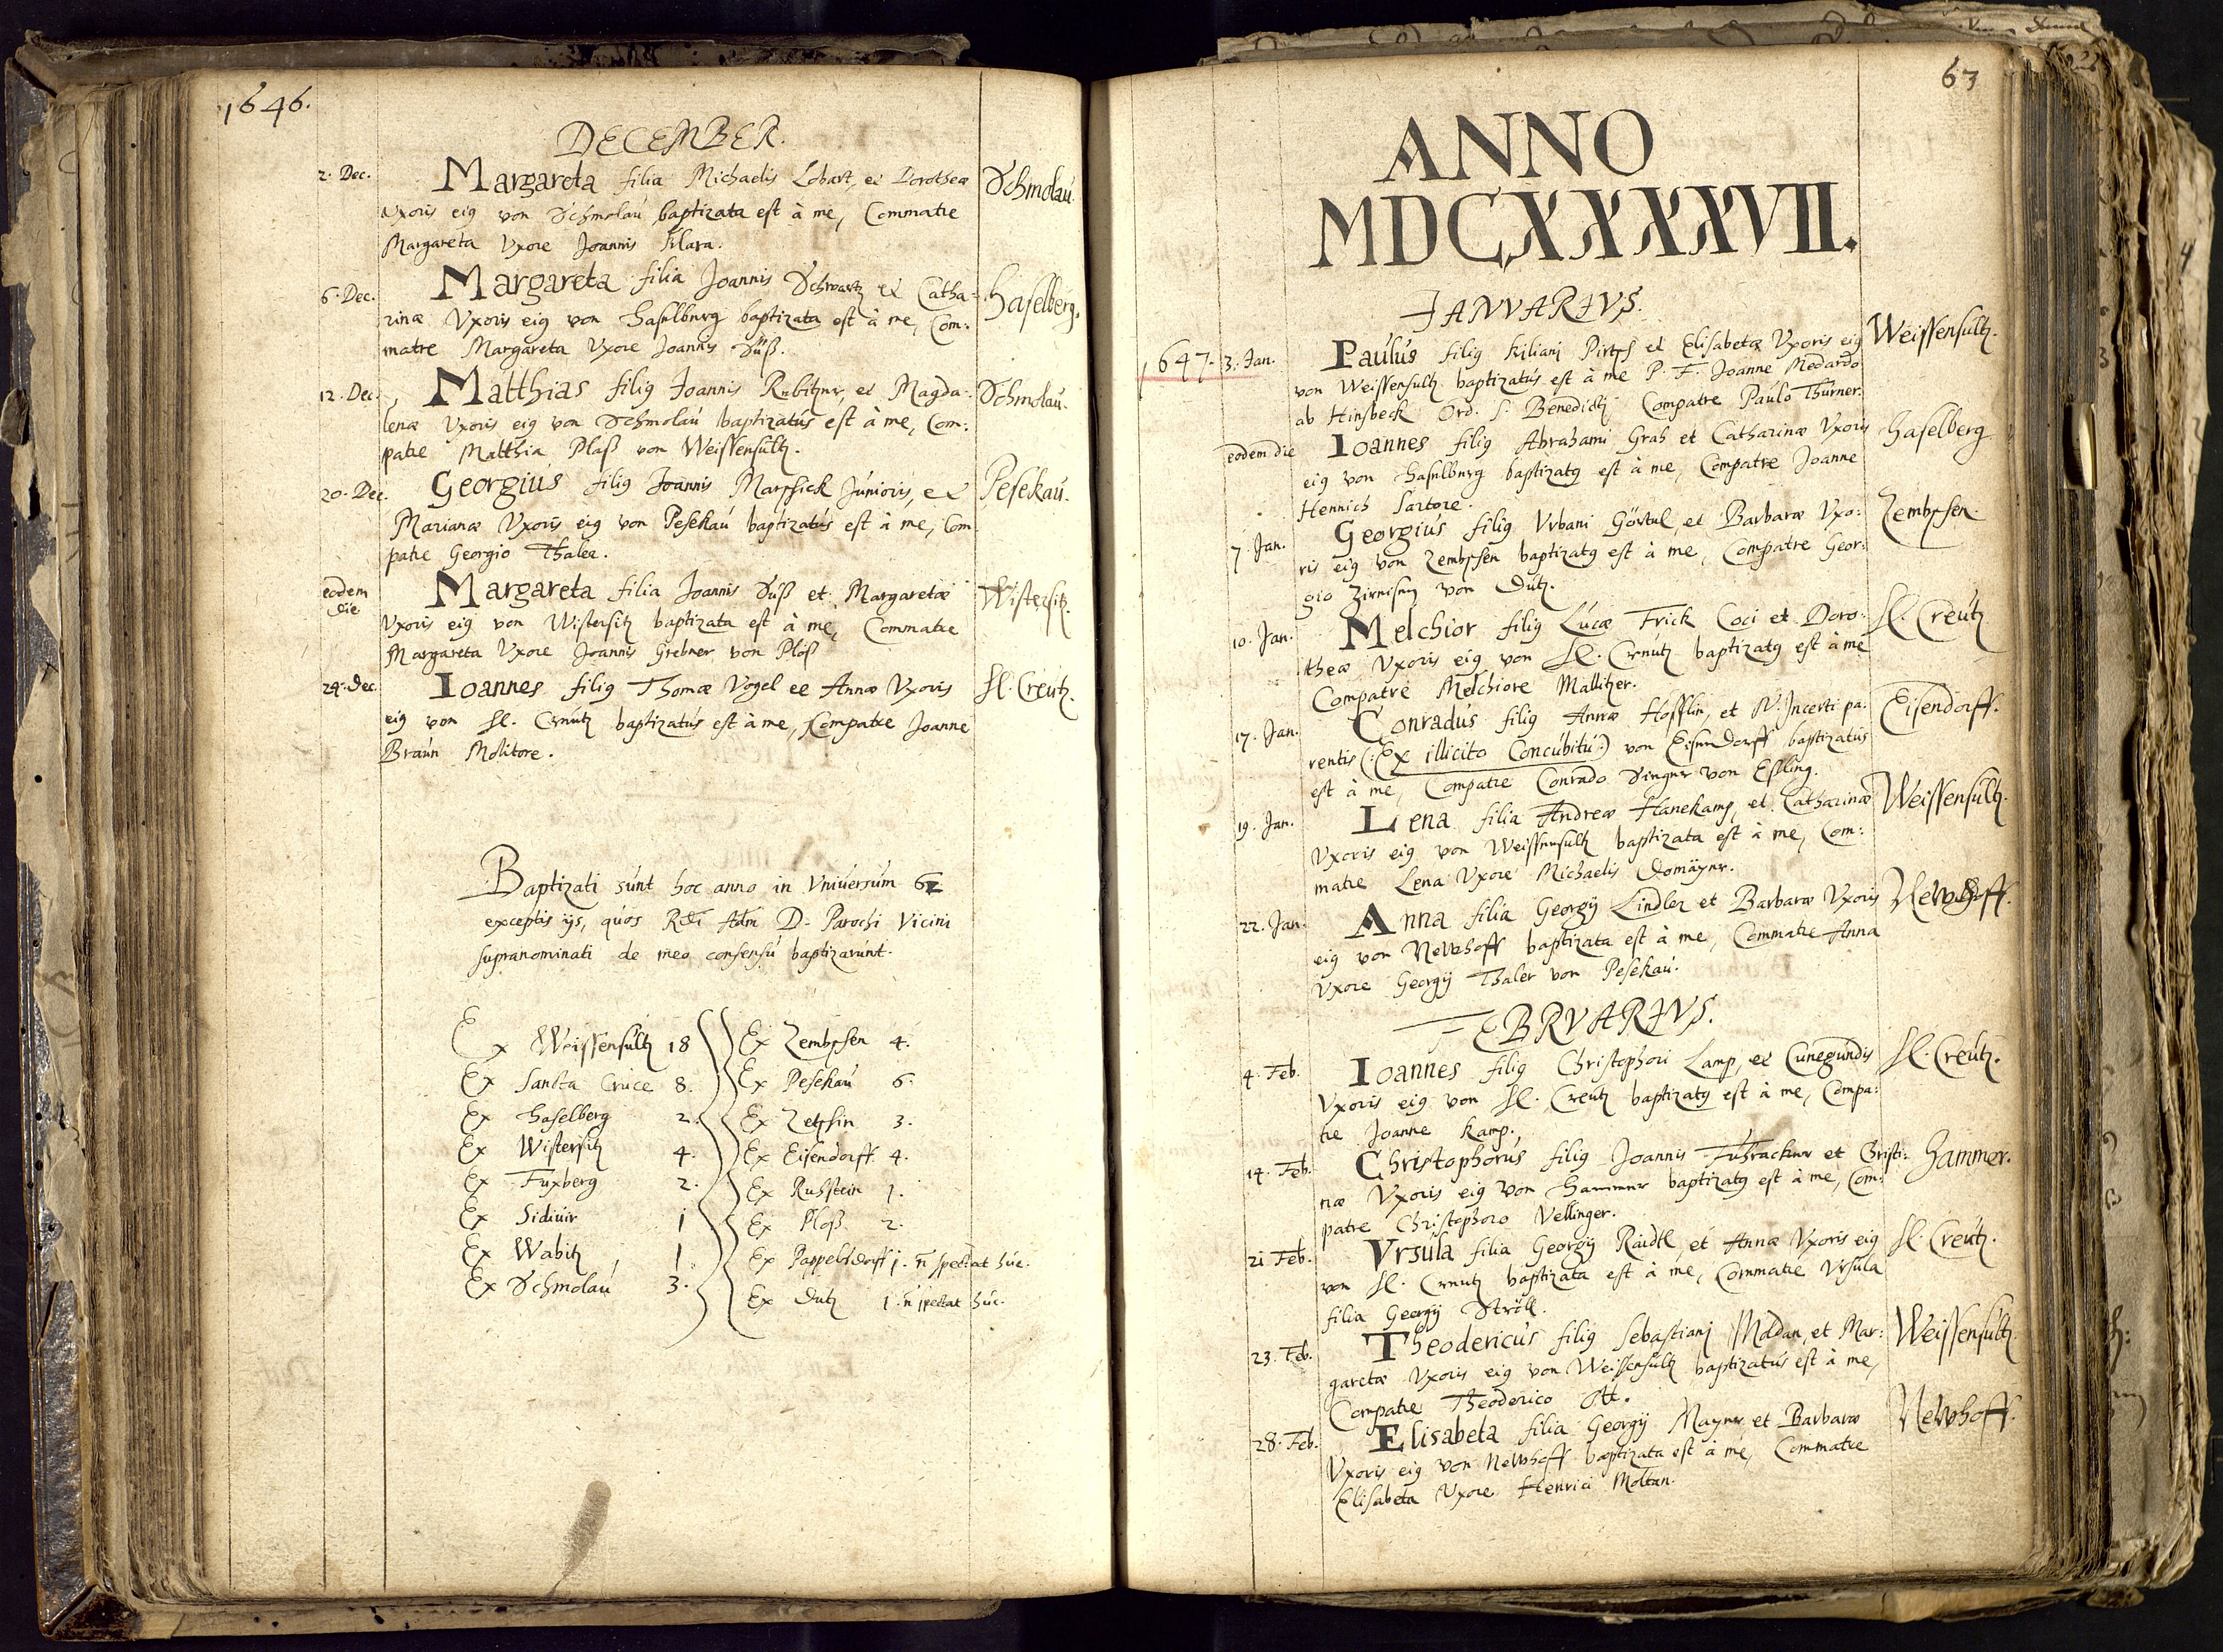 1646.
DECEMBER.
2. Dec.
Margareta filia Michaelis Lobart, et Dorotheæ
Schmolau.
Vxoris eiꝰ von Schmolau baptizata est à me, Commatre
Margareta Vxore Joannis Klara.
6. Dec.
Margareta filia Joannis Schwartz et Catha-
Haselberg.
rinæ Vxoris eiꝰ von Haselburg baptizata est à me, Com:
matre Margareta Vxore Joannis Süß.
12. Dec.
Matthias filiꝰ Joannis Rubitzner, et Magda-
Schmolau.
lenæ Vxoris eiꝰ von Schmolau baptizatus est à me, Com:
patre Matthia Plaß von Weissensultz.
20. Dec.
Georgius filiꝰ Joannis Marssick Junioris, et
Pesekau.
Marianæ Vxoris eiꝰ von Pesekau baptizatus est à me, Com
patre Georgio Thaler.
eodem
die
Margareta filia Joannis Süß et Margaretæ
Wistersitz.
Vxoris eiꝰ von Wistersitz baptizata est à me, Commatre
Margareta Vxore Joannis Grebner von Plöß
24. Dec.
Ioannes filiꝰ Thomæ Vogel et Annæ Vxoris
Hl. Creutz.
eiꝰ von Hl. Creutz baptizatus est à me, Compatre Joanne
Braun Molitore.
Baptizati sunt hoc anno in Vniuersum
exceptis ijs, quos Rdi Adm D. Parochi Vicini
supranominati de meo consensu baptizarunt.
Ex Weissensultz 18
Ex Sancta Cruce 8.
Ex Haselberg 2.
Ex Wistersitz 4.
Ex Fuxberg 2.
Ex Sidiuir 1
Ex Wabitz 1
Ex Schmolau 3.
Ex Zembschen 4.
Ex Pesekau 6.
Ex Zetschin 3.
Ex Eisendorff 4.
Ex Ruhstein 1.
Ex Ploß 2.
Ex Pappelsdorff 1. n̄ spectat huc.
Ex Dutz 1. n̄ spectat huc.
63
ANNO
MDCXXXXVII.
IANVARIVS.
1647. 3. Jan.
Paulus filiꝰ Kiliani Pirtsch et Elisabetæ Vxoris eiꝰ
Weissensultz.
von Weissensultz baptizatus est à me P. F. Joanne Medardo
ab Hinsbeck Ord. S. Benedicti Compatre Paulo Thurner.
eodem die
Ioannes filiꝰ Abrahami Grah et Catharinæ Vxoris
Haselberg
eiꝰ von Haselburg baptizatꝰ est à me, Compatre Joanne
Hennich Sartore.
7. Jan.
Georgius filiꝰ Vrbani Görtel, et Barbaræ Vxo:
Zembschen.
ris eiꝰ von Zembschen baptizatꝰ est à me, Compatre Geor:
gio von Dutz.
10. Jan.
Melchior filiꝰ Lucæ Frick Coci et Doro:
Hl. Creutz
theæ Vxoris eiꝰ von Hl. Creutz baptizatꝰ est à me
Compatre Melchiore Mallitzer.
17. Jan.
Conradus filiꝰ Annæ Hofflin, et N. Incerti pa:
Eisendorff.
rentis (:Ex illicito Concubitu:) von Eisendorff baptizatus
est à me, Compatre Conrado Singer von Essling.
19. Jan.
Lena filia Andreæ Hanekamp, et Catharinæ
Weissensultz.
Vxoris eiꝰ von Weissensultz baptizata est à me, Com:
matre Lena Vxore Michaelis Domäyner.
22. Jan.
Anna filia Georgij Lindler et Barbaræ Vxoris
Newhoff.
eiꝰ von Newhoff baptizata est à me, Commatre Anna
Vxore Georgij Thaler von Pesekau.
FEBRVARIVS.
4. Feb.
Ioannes filiꝰ Christophori Lamp, et Cunegundis
Hl. Creutz.
Vxoris eiꝰ von Hl. Creutz baptizatꝰ est à me, Compa:
tre Joanne Kamp.
14. Feb.
Christophorus filiꝰ Joannis Fuhrackner et Christi:
Hammer.
næ Vxoris eiꝰ von Hammer baptizatꝰ est à me, Com:
patre Christophoro Vellinger.
21 Feb.
Vrsula filia Georgij Raidtl et Annæ Vxoris eiꝰ
Hl. Creutz.
von Hl. Creutz baptizata est à me, Commatre Vrsula
filia Georgij Ströll.
23. Feb.
Theodericus filiꝰ Sebastiani Madan, et Mar:
Weissensultz.
garetæ Vxoris eiꝰ von Weissensultz baptizatus est à me,
Compatre Theoderico Ott.
28. Feb.
Elisabeta filia Georgij Mayner et Barbaræ
Newhoff.
Vxoris eiꝰ von Newhoff baptizata est à me, Commatre
Elisabeta Vxore Henrici Moltan.